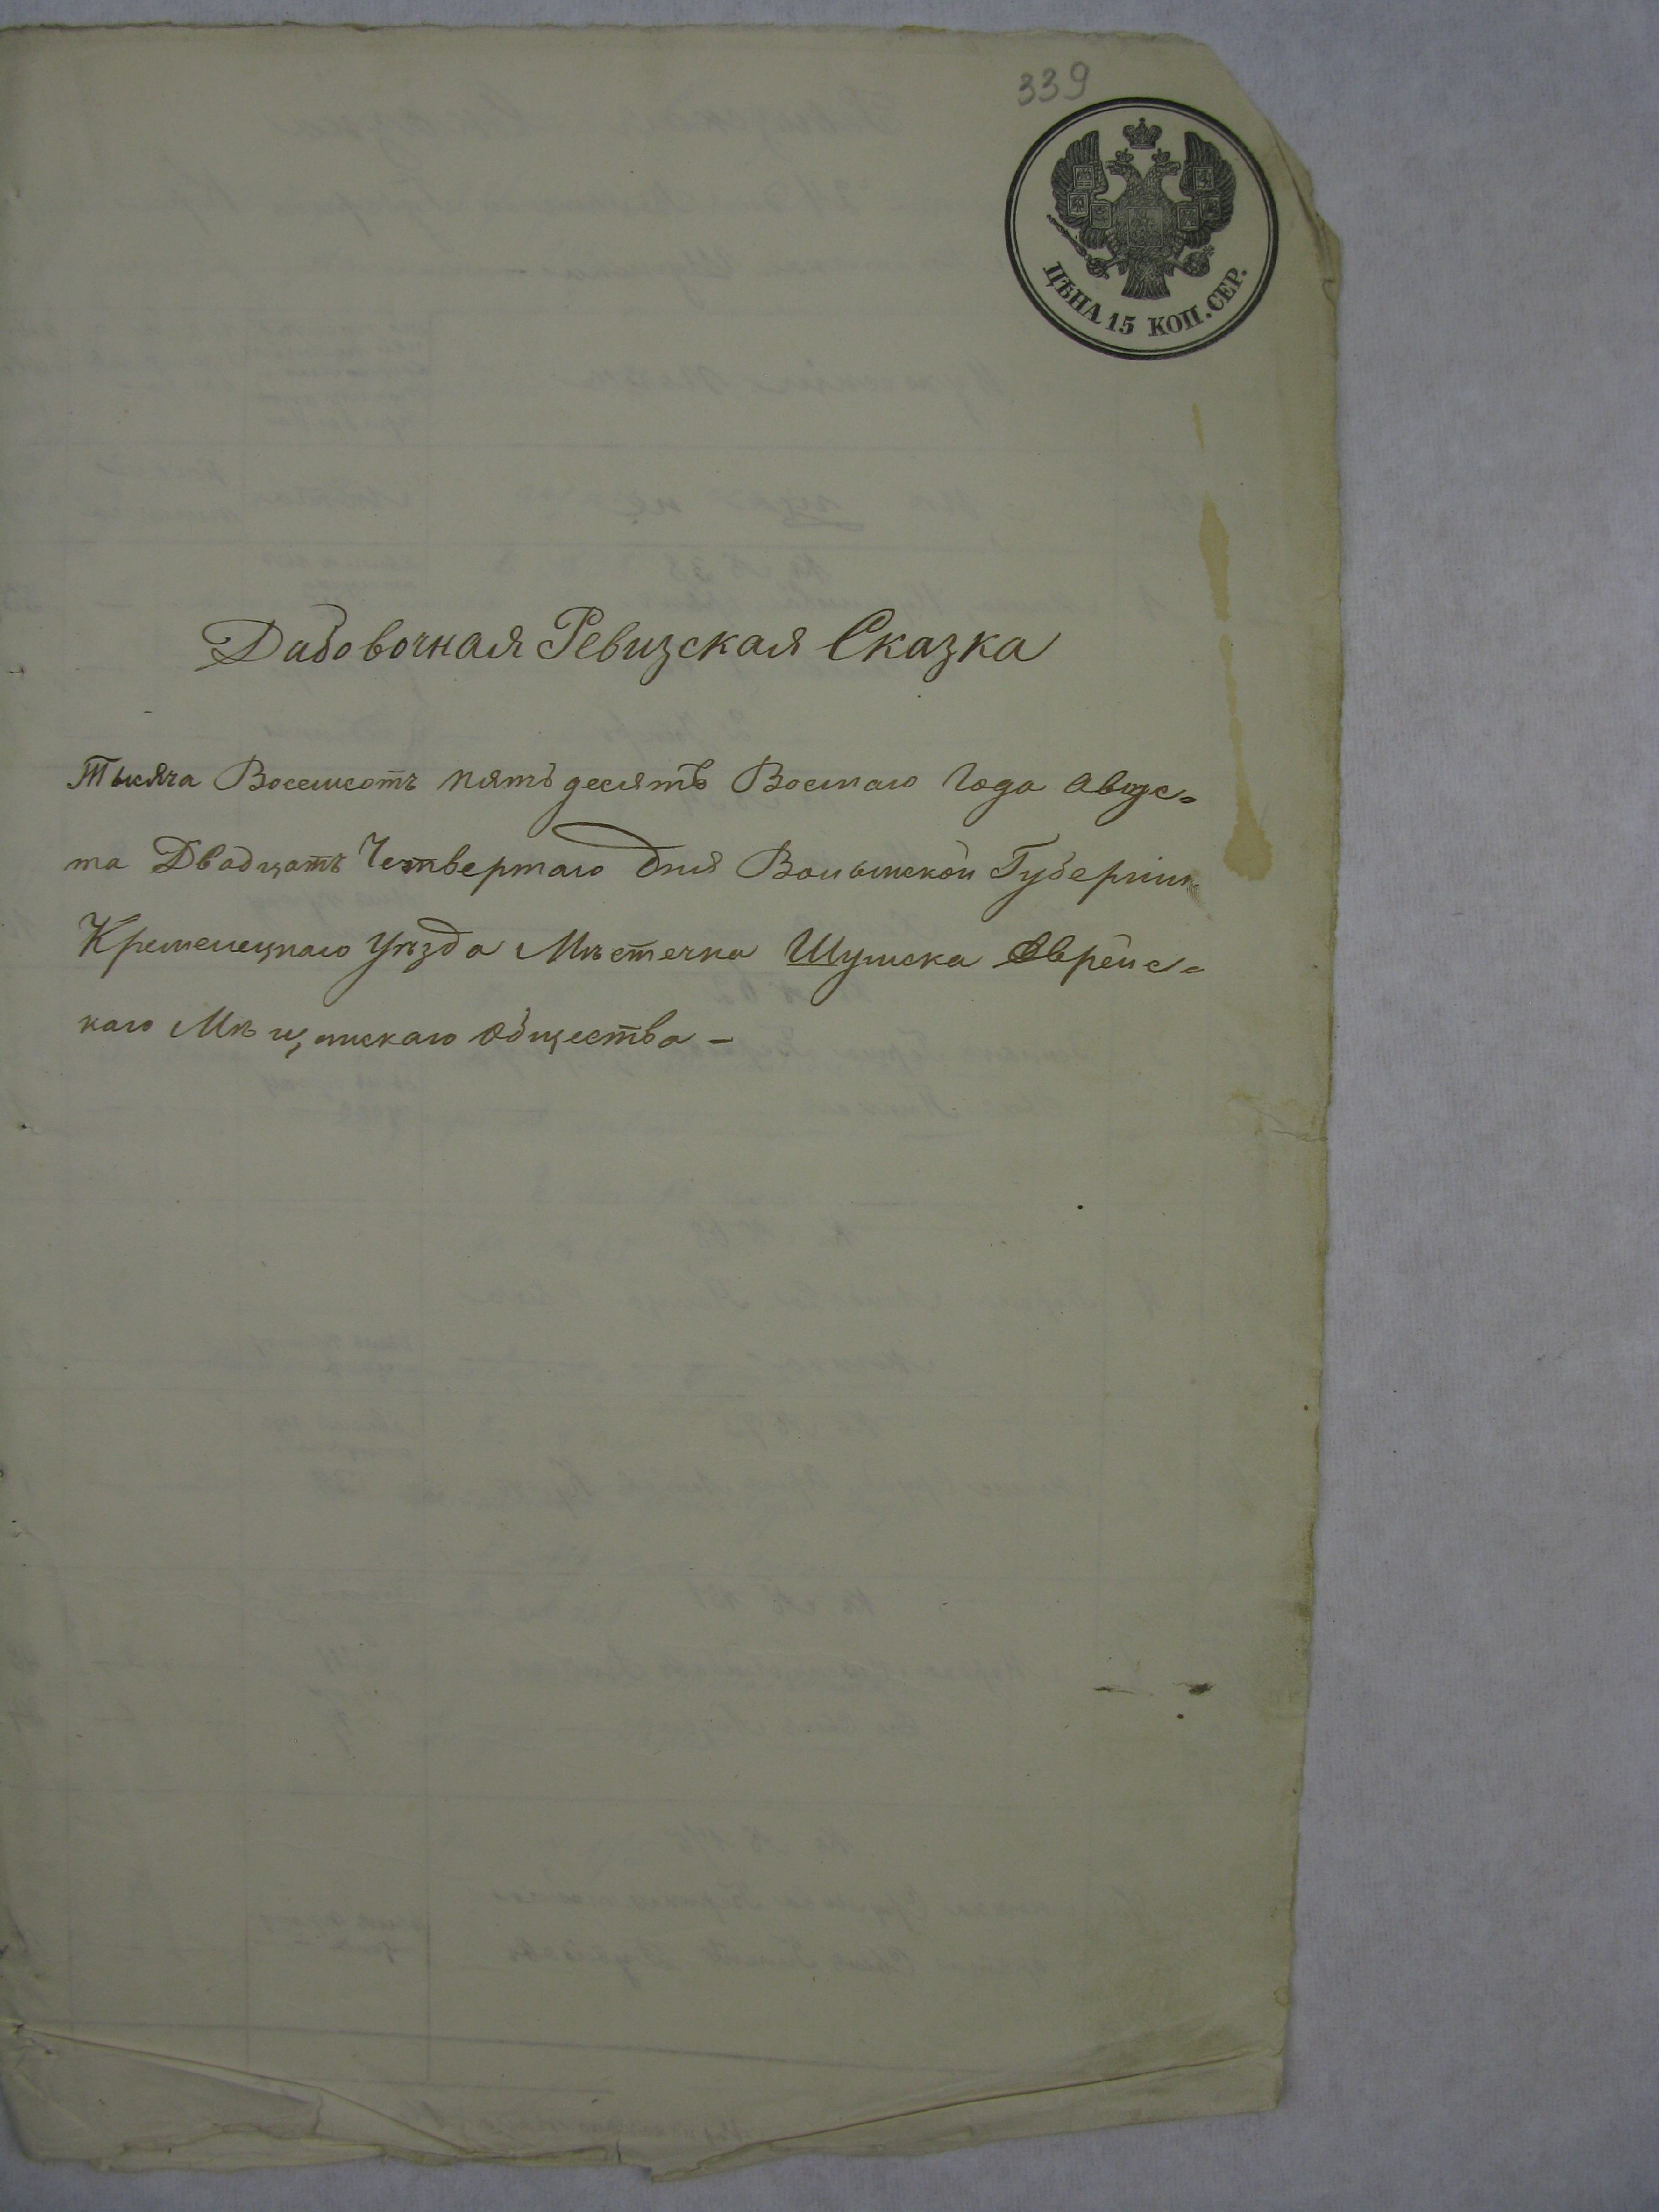 339
ЦѢНА 15 КОП. СЕР.
Дабовочная Ревизская Сказка
Тысяча Восемсотъ пятьдесятъ Восмаго Года Авгус-
та Двадцать Четвертаго Дня Волынской Губерніи
Кременецкаго Уѣзда Мѣстечка Шумска Еврейс-
каго Мѣщанскаго Общества -